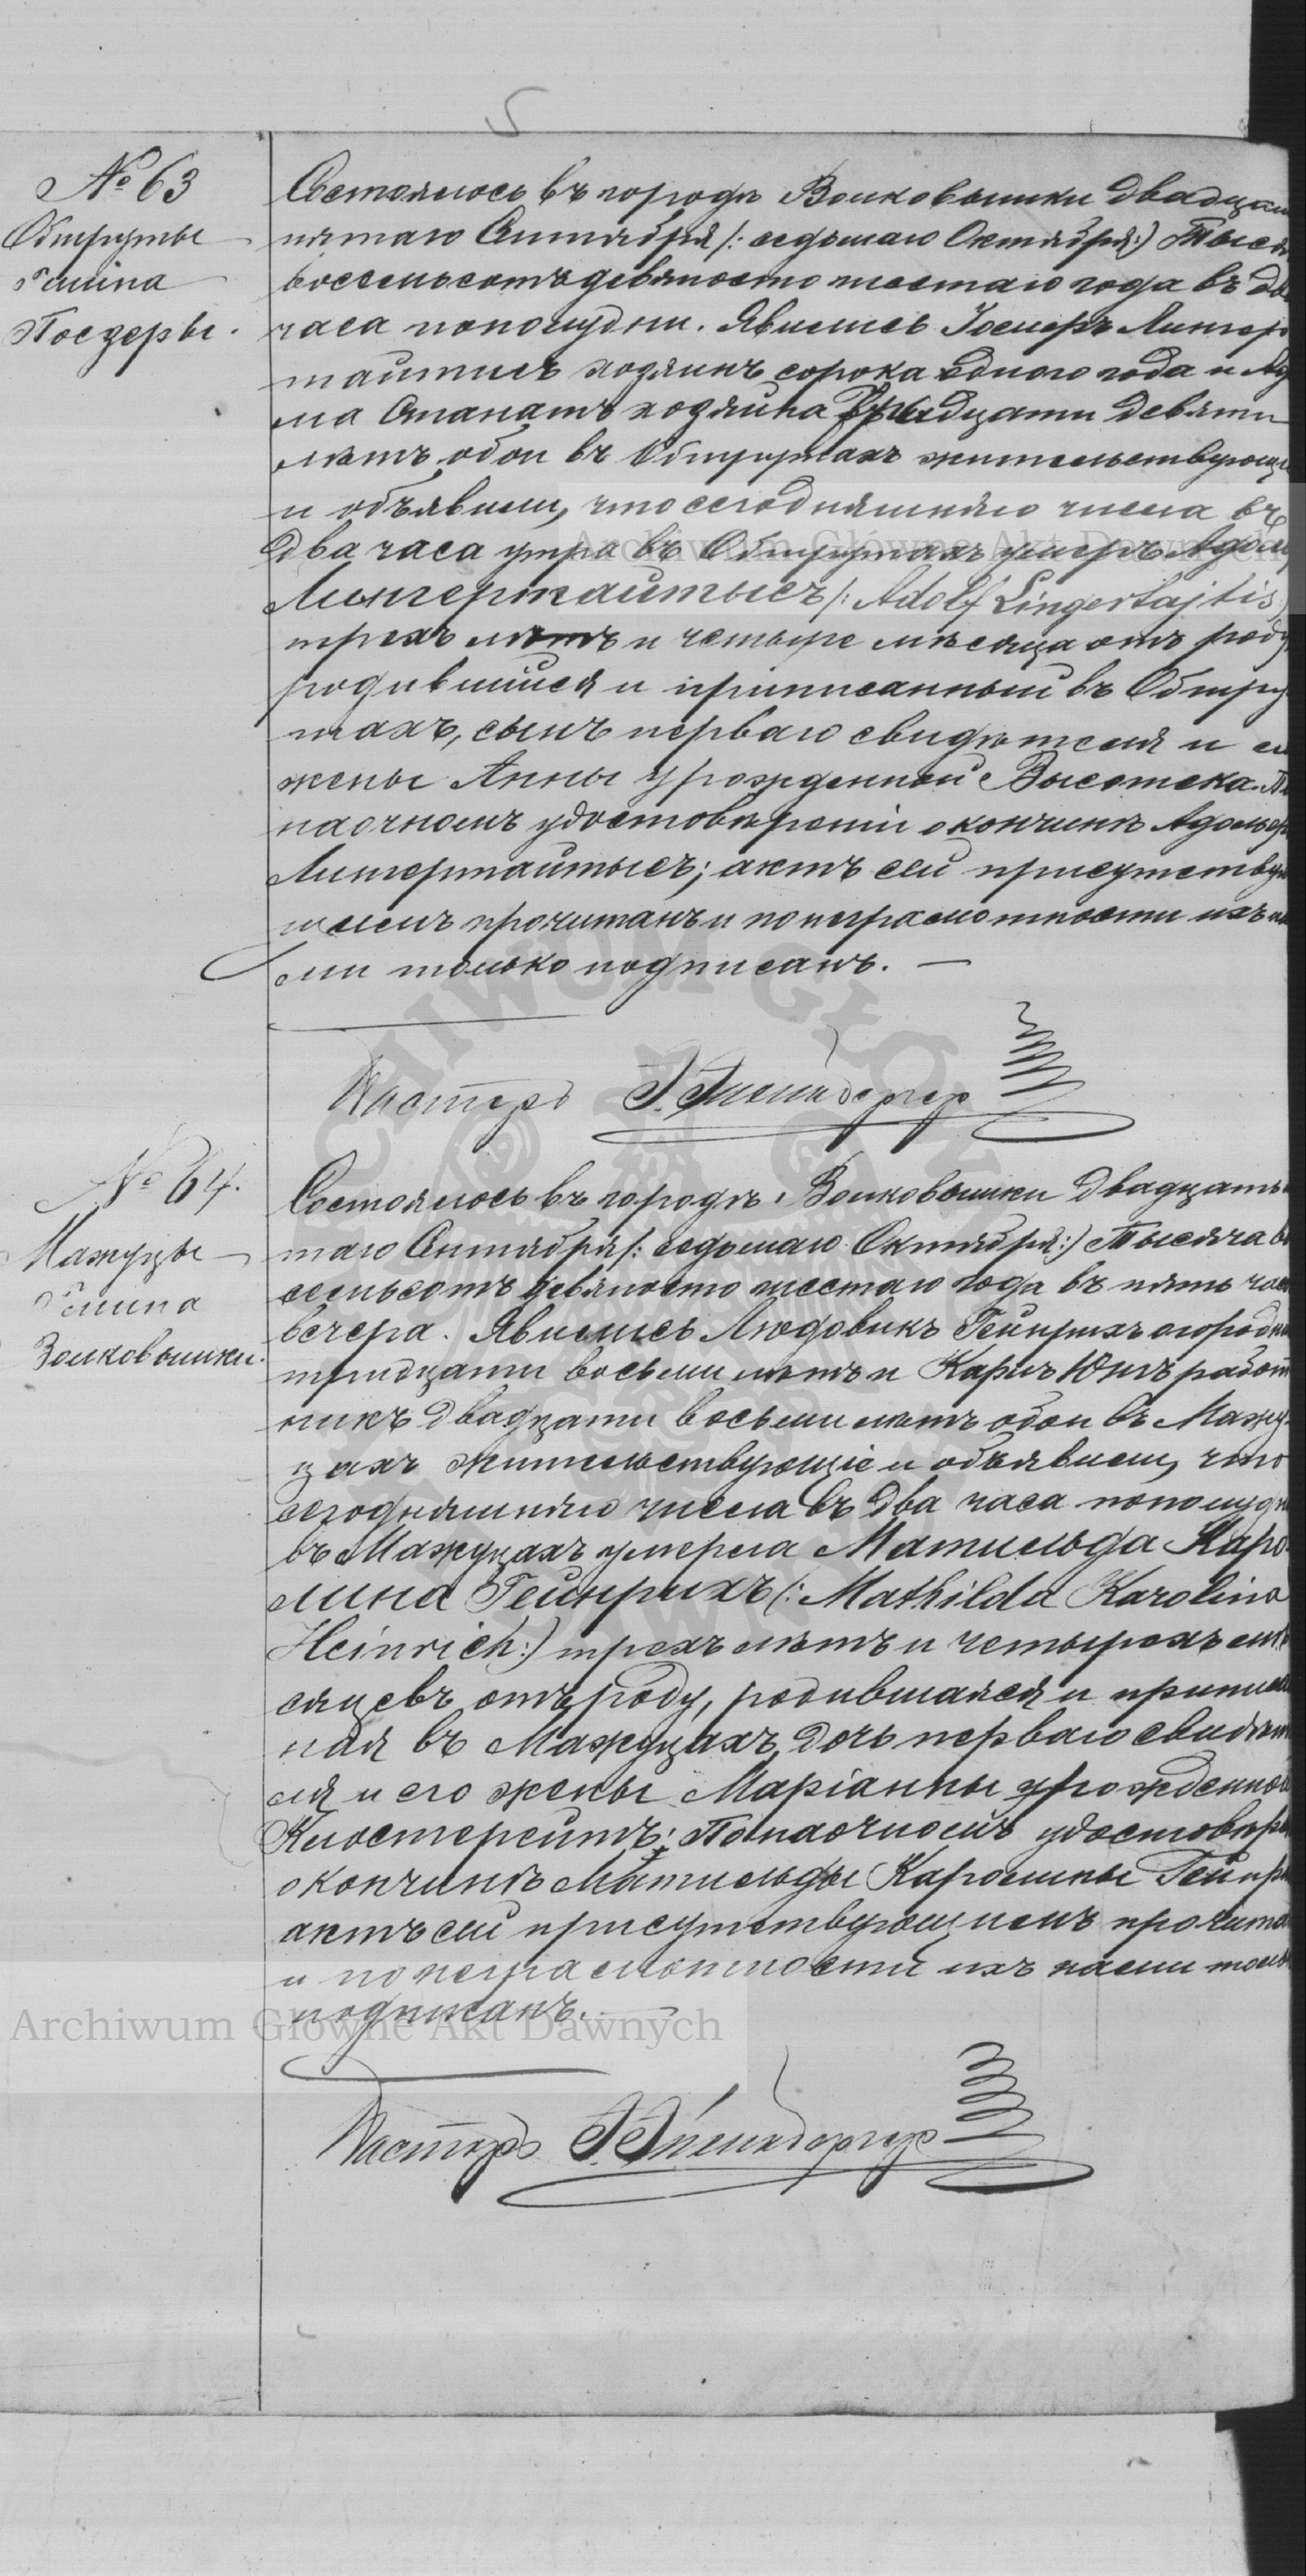 № 63
Обшруты
Гмина
Посдеры.
Состоялось въ городѣ Волковышки двадцать
пятаго Сентября /: седьмаго Октября:) Тысяча
восемьсотъ девяносто шестаго года въ два
часа пополудни. Явились Іосифъ Лингер
тайтисъ хозяинъ сорока одного года и
хозяина тридцати девяти
лѣтъ обои въ Обшрутахъ жительствующіе
и объявили, что сегодняшняго числа въ
два часа утра въ Обшрутахъ умеръ Адольфъ
Лингертайтысъ /: Adolf Lingertajtis
трехъ лѣтъ и четыре мѣсяца отъ роду
родившійся и приписанный въ Обшру
тахъ, сынъ перваго свидѣтеля и его
жены Анны урожденной Высотска. По
наочномъ удостовѣреніи о кончинѣ Адольфа
Лингертайтысъ; актъ сей присутствую
щимъ прочитанъ и по неграмотности ихъ на
ми только подписанъ. —
Пасторъ
№ 64.
Мажуцы
Гмина
Волковышки.
Состоялось въ городѣ Волковышки двадцать пя
таго Сентября /: седьмаго Октября:) Тысяча во
семьсотъ девяносто шестаго года въ пять часовъ
вечера. Явились Людовикъ Гейнрихъ огородникъ
тридцати восьми лѣтъ и Карлъ Юнъ работ
никъ двадцати восьми лѣтъ обои въ Мажу
цахъ жительствующіе и объявили, что
сегодняшняго числа въ два часа пополудни
въ Мажуцахъ умерла Матильда Каро
лина Гейнрихъ (: Mathilda Karolina
Heinrich:) трехъ лѣтъ и четырехъ мѣ
сяцевъ отъ роду, родившаяся и приписан
ная въ Мажуцахъ, дочь перваго свидѣте
ля и его жены Маріанны урожденной
Клостерейтъ; По наочномъ удостовѣреніи
о кончинѣ Матильды Каролины Гейнрихъ
актъ сей присутствующимъ прочитанъ
и по неграмотности ихъ нами только
подписанъ. —
Пасторъ
Archiwum Główne Akt Dawnych